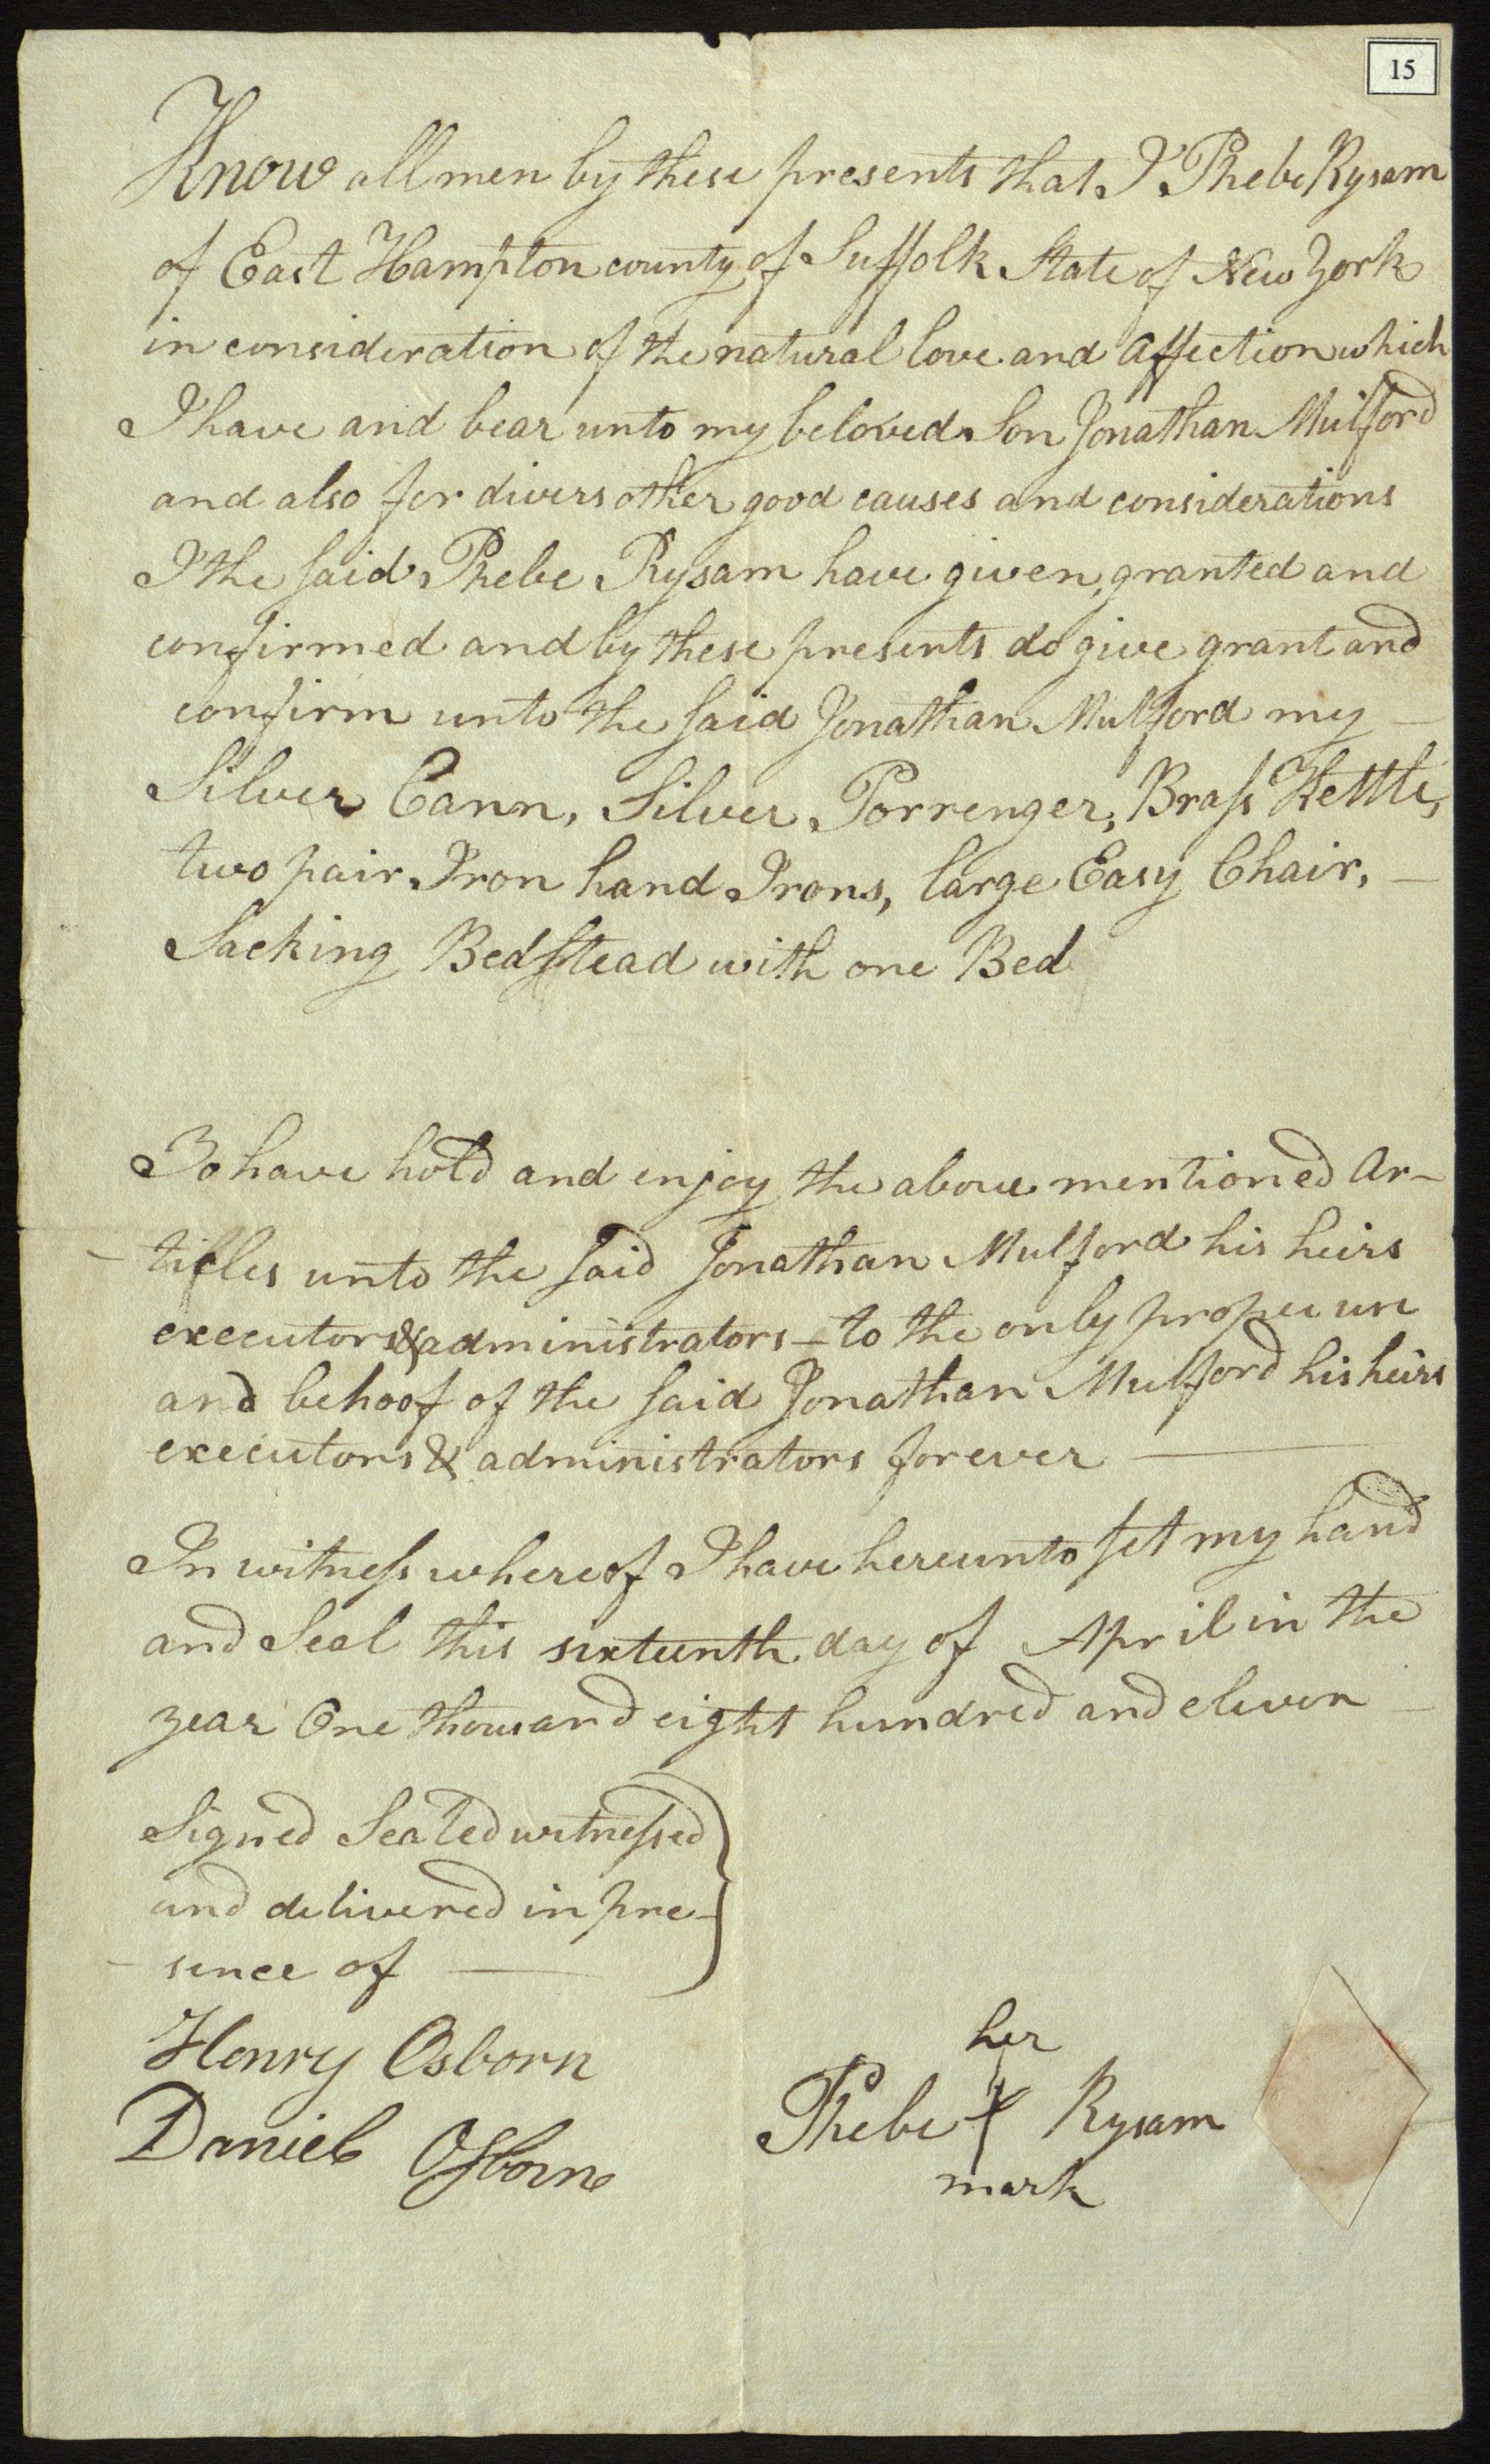 15
Know all men by these presents that I Phebe Rysam
of East Hampton county of Suffolk State of New York
in consideration of the natural love and Affection which
I have and bear unto my beloved Son Jonathan Mulford
and also for divers other good causes and considerations
I the said Phebe Rysam have given, granted and
confirmed and by these presents do give grant and
confirm unto the said Jonathan Mulford my —
Silver Cann, Silver Porrenger, Brass Kettle,
two pair Iron hand Irons, large Easy Chair, —
Sacking Bedstead with one Bed
To have hold and enjoy the above mentioned Ar-
- ticles unto the said Jonathan Mulford his heirs
executors & administrators — to the only proper use
and behoof of the said Jonathan Mulford his heirs
executors & administrators forever —
In witness whereof I have hereunto set my hand
and Seal this sixteenth day of April in the
year One thousand eight hundred and eleven —
Signed Sealed witnessed
and delivered in pre-
- sence of —
Henry Osborn
Daniel Osborne
her
Phebe + Rysam
mark